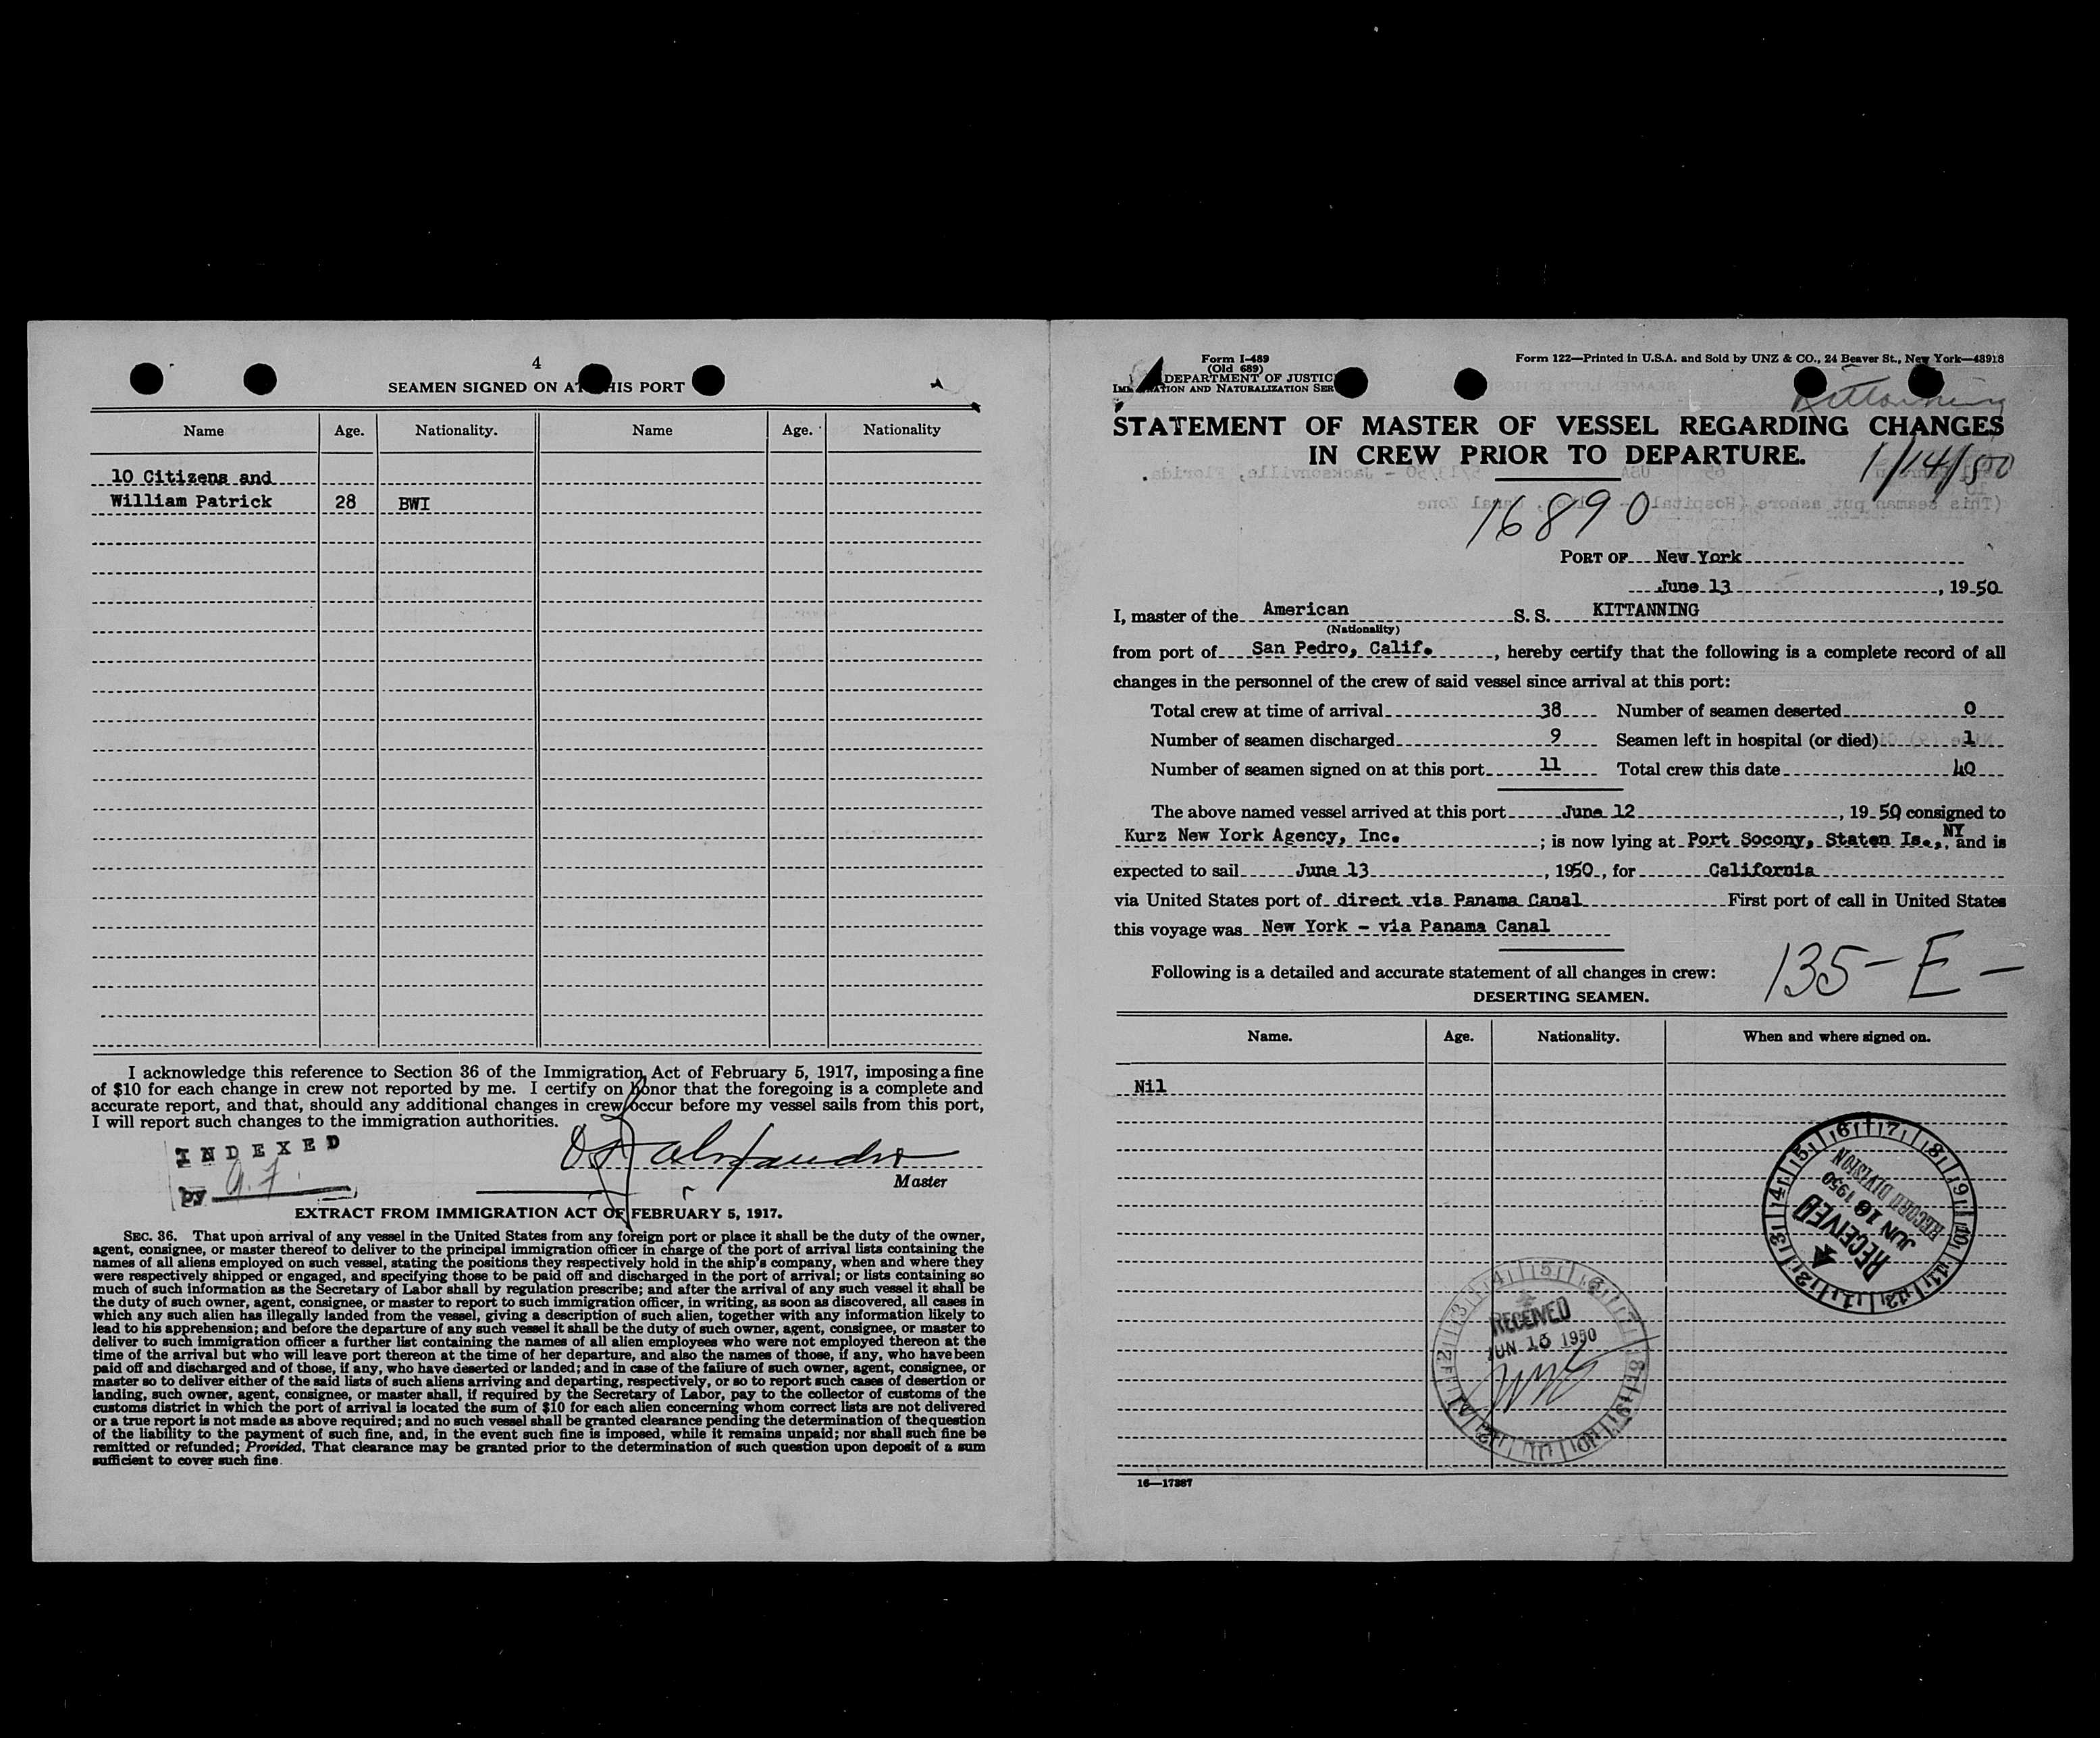 4
SEAMEN SIGNED ON AT THIS PORT
Name Age. Nationality. Name Age. Nationality
10 Citizens and
William Patrick 28 BWI
I acknowledge this reference to Section 36 of the Immigration Act of February 5, 1917, imposing a fine
of $10 for each change in crew not reported by me. I certify on honor that the foregoing is a complete and
accurate report, and that, should any additional changes in crew occur before my vessel sails from this port,
I will report such changes to the immigration authorities.
INDEXED
by
Master
EXTRACT FROM IMMIGRATION ACT OF FEBRUARY 5, 1917.
SEC. 36. That upon arrival of any vessel in the United States from any foreign port or place it shall be the duty of the owner,
agent, consignee, or master thereof to deliver to the principal immigration officer in charge of the port of arrival lists containing the
names of all aliens employed on such vessel, stating the positions they respectively hold in the ship's company, when and where they
were respectively shipped or engaged, and specifying those to be paid off and discharged in the port of arrival; or lists containing so
much of such information as the Secretary of Labor shall by regulation prescribe; and after the arrival of any such vessel it shall be
the duty of such owner, agent, consignee, or master to report to such immigration officer, in writing, as soon as discovered, all cases in
which any such alien has illegally landed from the vessel, giving a description of such alien, together with any information likely to
lead to his apprehension; and before the departure of any such vessel it shall be the duty of such owner, agent, consignee, or master to
deliver to such immigration officer a further list containing the names of all alien employees who were not employed thereon at the
time of the arrival but who will leave port thereon at the time of her departure, and also the names of those, if any, who have been
paid off and discharged and of those, if any, who have deserted or landed; and in case of the failure of such owner, agent, consignee, or
master so to deliver either of the said lists of such aliens arriving and departing, respectively, or so to report such cases of desertion or
landing, such owner, agent, consignee, or master shall, if required by the Secretary of Labor, pay to the collector of customs of the
customs district in which the port of arrival is located the sum of $10 for each alien concerning whom correct lists are not delivered
or a true report is not made as above required; and no such vessel shall be granted clearance pending the determination of the question
of the liability to the payment of such fine, and, in the event such fine is imposed, while it remains unpaid; nor shall such fine be
remitted or refunded; Provided, That clearance may be granted prior to the determination of such question upon deposit of a sum
sufficient to cover such fine.
Form I-489
(Old 689)
DEPARTMENT OF JUSTICE
IMMIGRATION AND NATURALIZATION SER
Form 122—Printed in U.S.A. and Sold by UNZ & CO., 24 Beaver St., New York—48918
Kittanning
STATEMENT OF MASTER OF VESSEL REGARDING CHANGES
IN CREW PRIOR TO DEPARTURE.
1/14/50
16890
PORT OF New York
June 13, 1950
I, master of the American S. S. KITTANNING
(Nationality)
from port of San Pedro, Calif., hereby certify that the following is a complete record of all
changes in the personnel of the crew of said vessel since arrival at this port:
Total crew at time of arrival 38 Number of seamen deserted 0
Number of seamen discharged 9 Seamen left in hospital (or died) 1
Number of seamen signed on at this port 11 Total crew this date 40
The above named vessel arrived at this port June 12, 1950 consigned to
Kurz New York Agency, Inc.; is now lying at Port Socony, Staten Is., NY and is
expected to sail June 13, 1950, for California
via United States port of direct via Panama Canal First port of call in United States
this voyage was New York - via Panama Canal
Following is a detailed and accurate statement of all changes in crew:
135-E-
DESERTING SEAMEN.
Name. Age. Nationality. When and where signed on.
Nil
RECEIVED
JUN 16 1950
RECORD DIVISION
RECEIVED
JUN 13 1950
16—17887